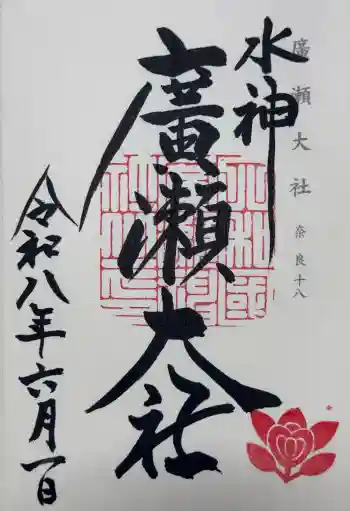 廣瀬大社 奈良十八
水神
廣瀬大社
令和八年六月一日